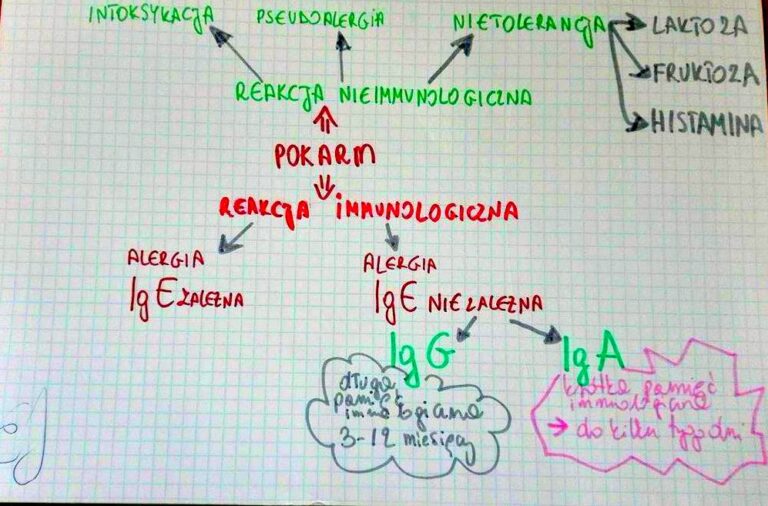 INTOKSYKACJA PSEUDOALERGIA NIETOLERANCJA LAKTOZA
FRUKTOZA
HISTAMINA
REAKCJA NIEIMMUNOLOGICZNA
POKARM
REAKCJA IMMUNOLOGICZNA
ALERGIA
IgE ZALEŻNA
ALERGIA
IgE NIEZALEŻNA
IgG
długa
pamięć
immunologiczna
3-12 miesięcy
IgA
krótka pamięć
immunologiczna
→ do kilku tygodni